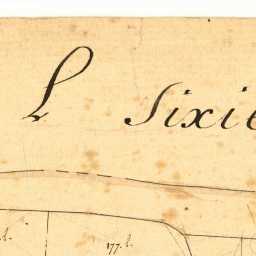 L Sixie
l.
177. l.